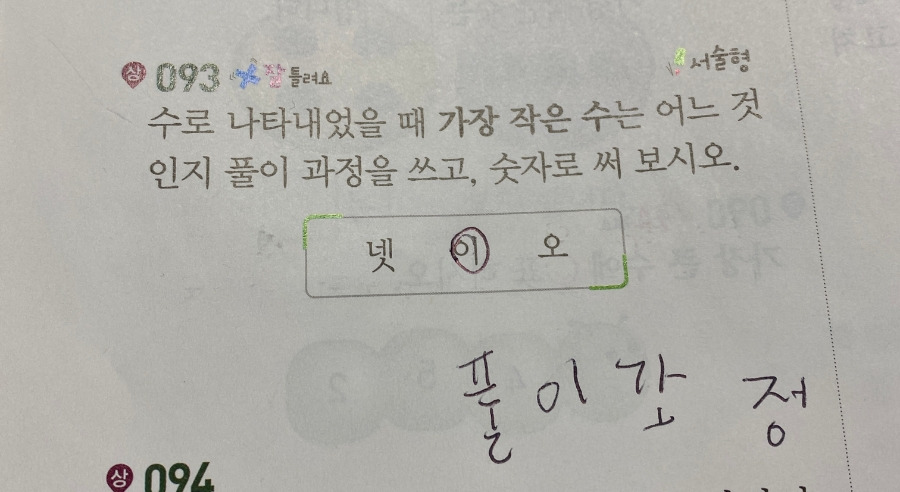 상 093 잘 틀려요 서술형
수로 나타내었을 때 가장 작은 수는 어느 것
인지 풀이 과정을 쓰고, 숫자로 써 보시오.
넷 이 오
풀이 정
상 094